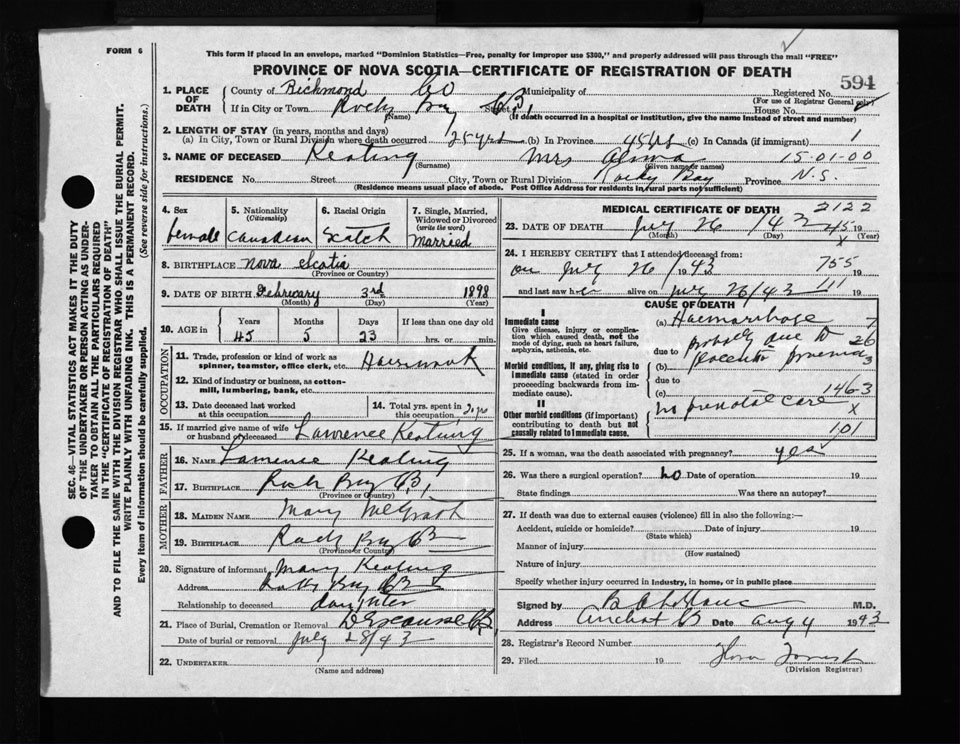 FORM 6
This form if placed in an envelope, marked "Dominion Statistics—Free, penalty for improper use $300," and properly addressed will pass through the mail "FREE"
PROVINCE OF NOVA SCOTIA—CERTIFICATE OF REGISTRATION OF DEATH
594
1. PLACE OF DEATH
County of Richmond Co Municipality of Registered No.
(For use of Registrar General only)
If in City or Town Rocky Bay Street C.B. House No.
(Name) (If death occurred in a hospital or institution, give the name instead of street and number)
2. LENGTH OF STAY (in years, months and days)
(a) In City, Town or Rural Division where death occurred 25 yrs (b) In Province 45 yrs (c) In Canada (if immigrant) 1
3. NAME OF DECEASED Keating Mrs Alma 15-01-00
(Surname) (Given name or names)
RESIDENCE No. Street City, Town or Rural Division Rocky Bay Province N.S.
(Residence means usual place of abode. Post Office Address for residents in rural parts not sufficient)
4. Sex
female
5. Nationality
(Citizenship)
Canadian
6. Racial Origin
Scotch
7. Single, Married, Widowed or Divorced
(write the word)
Married
8. BIRTHPLACE Nova Scotia
(Province or Country)
9. DATE OF BIRTH February 3rd 1898
(Month) (Day) (Year)
10. AGE in
Years Months Days If less than one day old
45 5 23 hrs. or min.
OCCUPATION
11. Trade, profession or kind of work as spinner, teamster, office clerk, etc. Housework
12. Kind of industry or business, as cotton-mill, lumbering, bank, etc.
13. Date deceased last worked at this occupation
14. Total yrs. spent in this occupation
15. If married give name of wife or husband of deceased Lawrence Keating
FATHER
16. NAME Lawrence Keating
17. BIRTHPLACE Rocky Bay C.B.
(Province or Country)
MOTHER
18. MAIDEN NAME Mary McGrath
19. BIRTHPLACE Rocky Bay C.B.
(Province or Country)
20. Signature of informant Mary Keating
Address Rocky Bay C.B.
Relationship to deceased daughter
21. Place of Burial, Cremation or Removal D'Escousse C.B.
Date of burial or removal July 28/43
22. UNDERTAKER
(Name and address)
MEDICAL CERTIFICATE OF DEATH 2122
23. DATE OF DEATH July 26/43 19
(Month) (Day) (Year)
24. I HEREBY CERTIFY that I attended deceased from:
on July 26/1943 755
and last saw her alive on July 26/43 111 19
CAUSE OF DEATH
I
Immediate cause
Give disease, injury, or complication which caused death, not the mode of dying, such as heart failure, asphyxia, asthenia, etc.
(a) Haemorrhage 7
due to probably due to 26
Morbid conditions, if any, giving rise to immediate cause (stated in order proceeding backwards from immediate cause).
(b) Placenta Praevia 3
due to
(c) 1463
II
Other morbid conditions (if important) contributing to death but not causally related to immediate cause.
no prenatal care x
101
25. If a woman, was the death associated with pregnancy? yes
26. Was there a surgical operation? no Date of operation 19
State findings Was there an autopsy?
27. If death was due to external causes (violence) fill in also the following:—
Accident, suicide or homicide? Date of injury 19
(State which)
Manner of injury
(How sustained)
Nature of injury
Specify whether injury occurred in industry, in home, or in public place
Signed by M.D.
Address Arichat C.B. Date Aug 4 1943
28. Registrar's Record Number
29. Filed 19
(Division Registrar)
SEC. 46—VITAL STATISTICS ACT MAKES IT THE DUTY OF THE UNDERTAKER OR PERSON ACTING AS UNDERTAKER TO OBTAIN ALL THE PARTICULARS REQUIRED IN THE "CERTIFICATE OF REGISTRATION OF DEATH"
AND TO FILE THE SAME WITH THE DIVISION REGISTRAR WHO SHALL ISSUE THE BURIAL PERMIT.
WRITE PLAINLY WITH UNFADING INK. THIS IS A PERMANENT RECORD.
Every item of information should be carefully supplied. (See reverse side for instructions.)